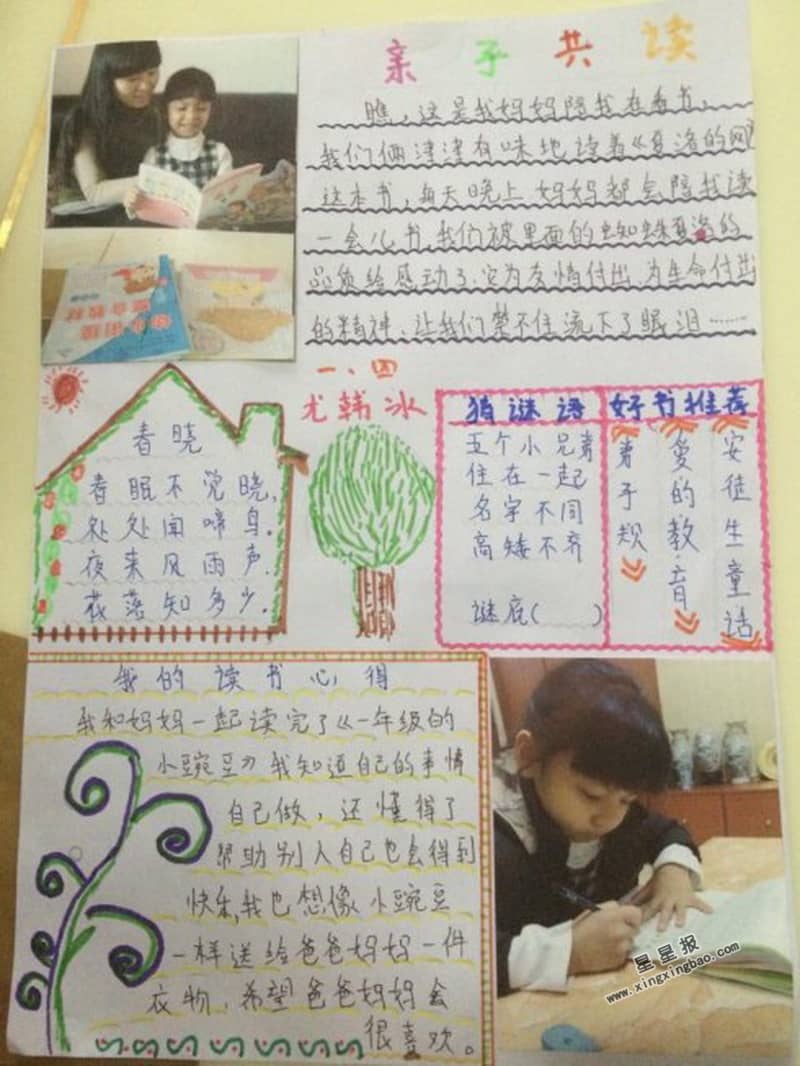 亲子共读
瞧，这是我妈妈陪我在看书，
我们俩津津有味地读着《夏洛的网》
这本书，每天晚上妈妈都会陪我读
一会儿书，我们被里面的蜘蛛夏洛的
品质给感动了，它为友情付出，为生命付出
的精神，让我们禁不住流下了眼泪……
幼小衔接
整合教材
一、四
尤韩冰
春晓
春眠不觉晓，
处处闻啼鸟。
夜来风雨声，
花落知多少。
猜谜语
五个小兄弟
住在一起
名字不同
高矮不齐
谜底（ ）
好书推荐
安徒生童话
爱的教育
弟子规
我的读书心得
我和妈妈一起读完了《一年级的
小豌豆》我知道自己的事情
自己做，还懂得了
帮助别人自己也会得到
快乐，我也想像小豌豆
一样送给爸爸妈妈一件
衣物，希望爸爸妈妈会
很喜欢。
星星报
www.xingxingbao.com